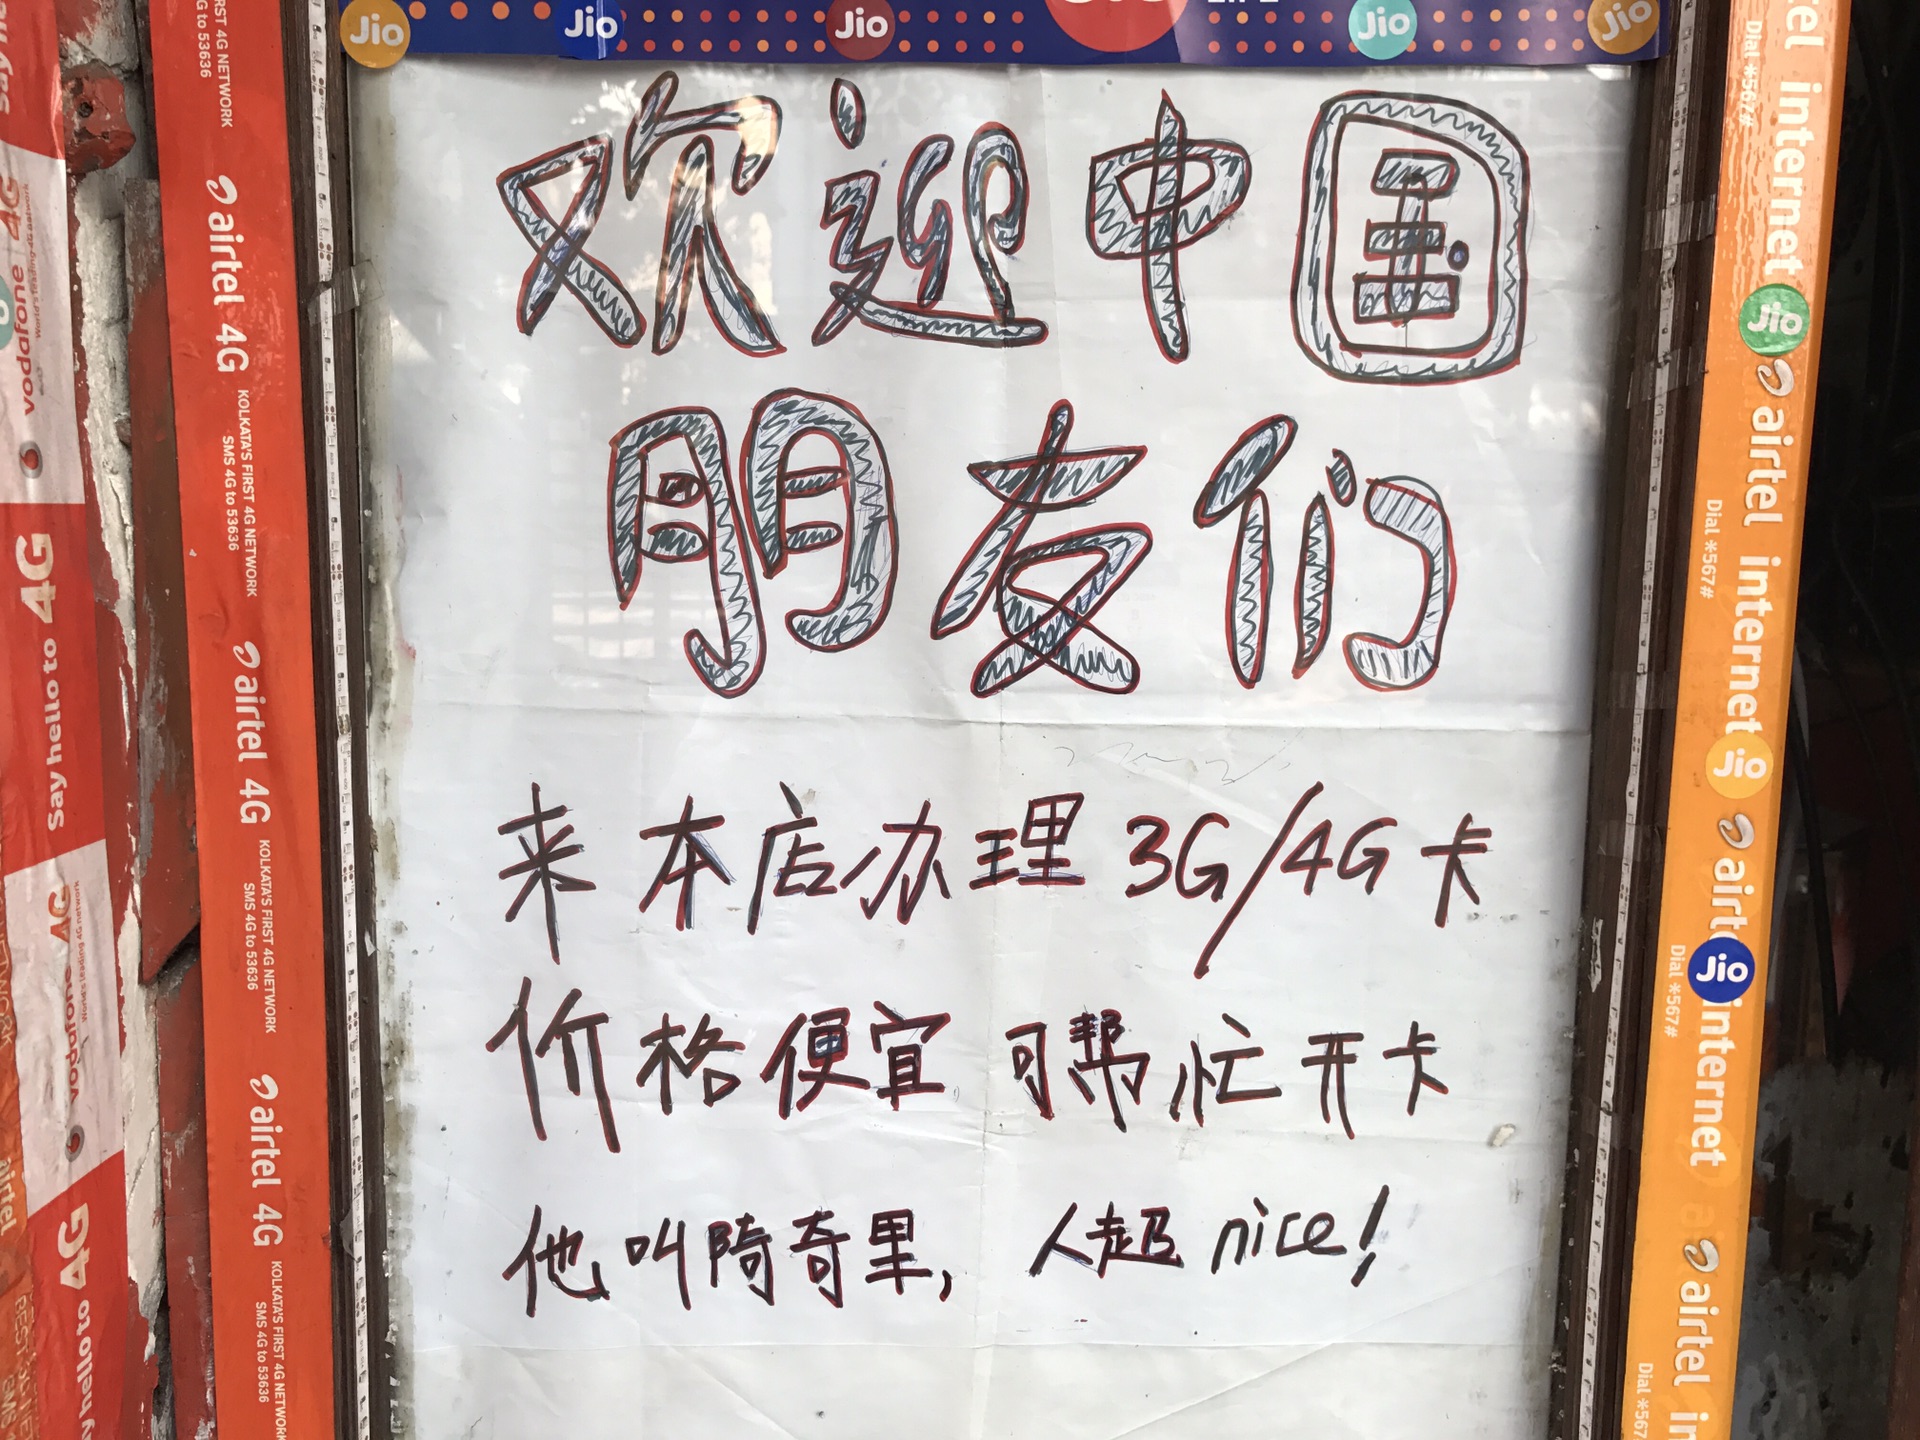 Jio Jio Jio Jio Jio
欢迎中国
朋友们
来本店办理3G/4G卡
价格便宜 可帮忙开卡
他叫陭奇里, 人超nice!
SMS 4G to 53636
airtel 4G
KOLKATA'S FIRST 4G NETWORK
SMS 4G to 53636
airtel 4G
KOLKATA'S FIRST 4G NETWORK
SMS 4G to 53636
airtel 4G
KOLKATA'S FIRST 4G NETWORK
SMS 4G to 53636
vodafone 4G
World's leading 4G network
Say hello to 4G
vodafone 4G
World's leading 4G network
Say hello to 4G
airtel
internet
Dial *567#
Jio
airtel internet
Dial *567#
Jio
airtel
Jio
internet
Dial *567#
airtel
Dial *567#